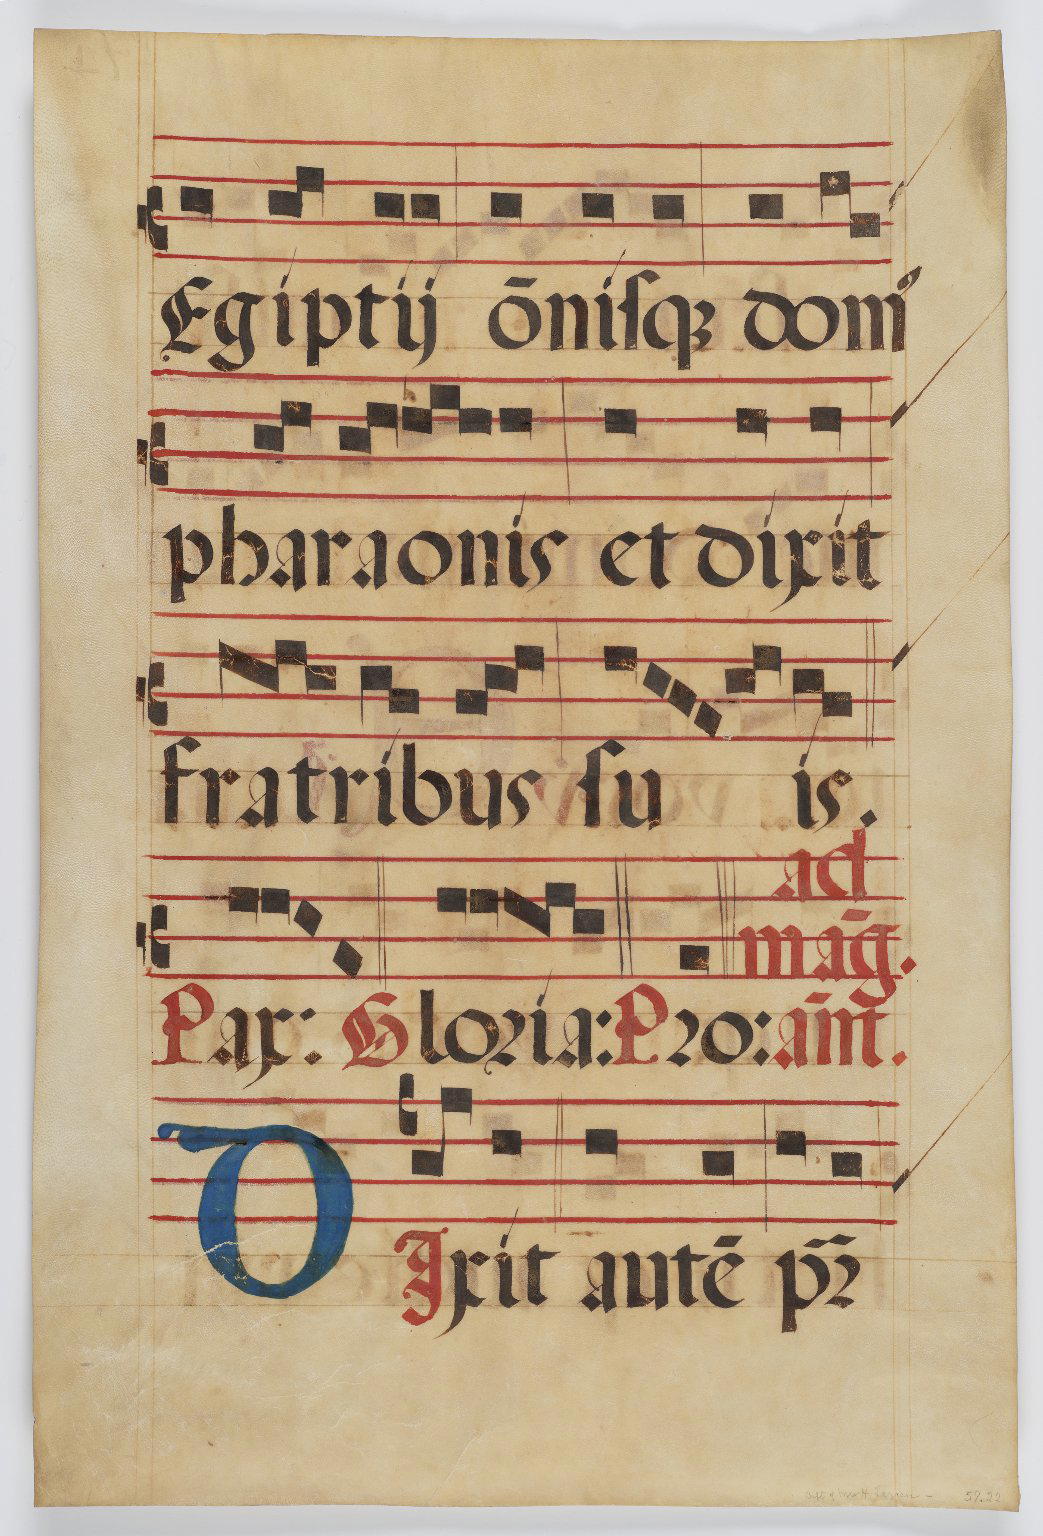 Egiptij õnisqꝫ domꝰ
pharaonis et dixit
fratribus su is.
ad
mag̃.
Pax: Gloria: Pro: añt.
Dixit autẽ pr̃
57.22